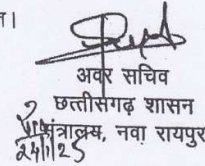 त।
अवर सचिव
छत्तीसगढ़ शासन
मंत्रालय, नवा रायपुर
24/1/25